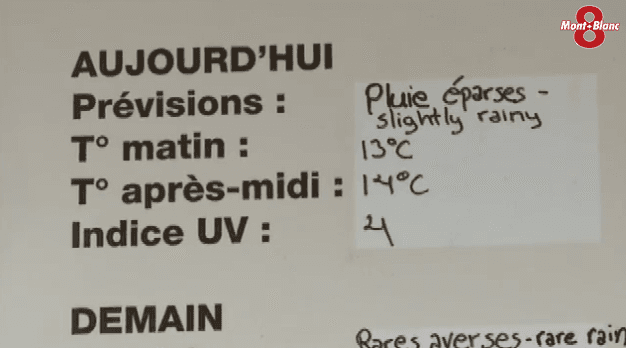 8
Mont-Blanc
AUJOURD'HUI
Prévisions : Pluie éparses -
slightly rainy
T° matin : 13°C
T° après-midi : 14°C
Indice UV : 4
DEMAIN
Rares averses - rare rain